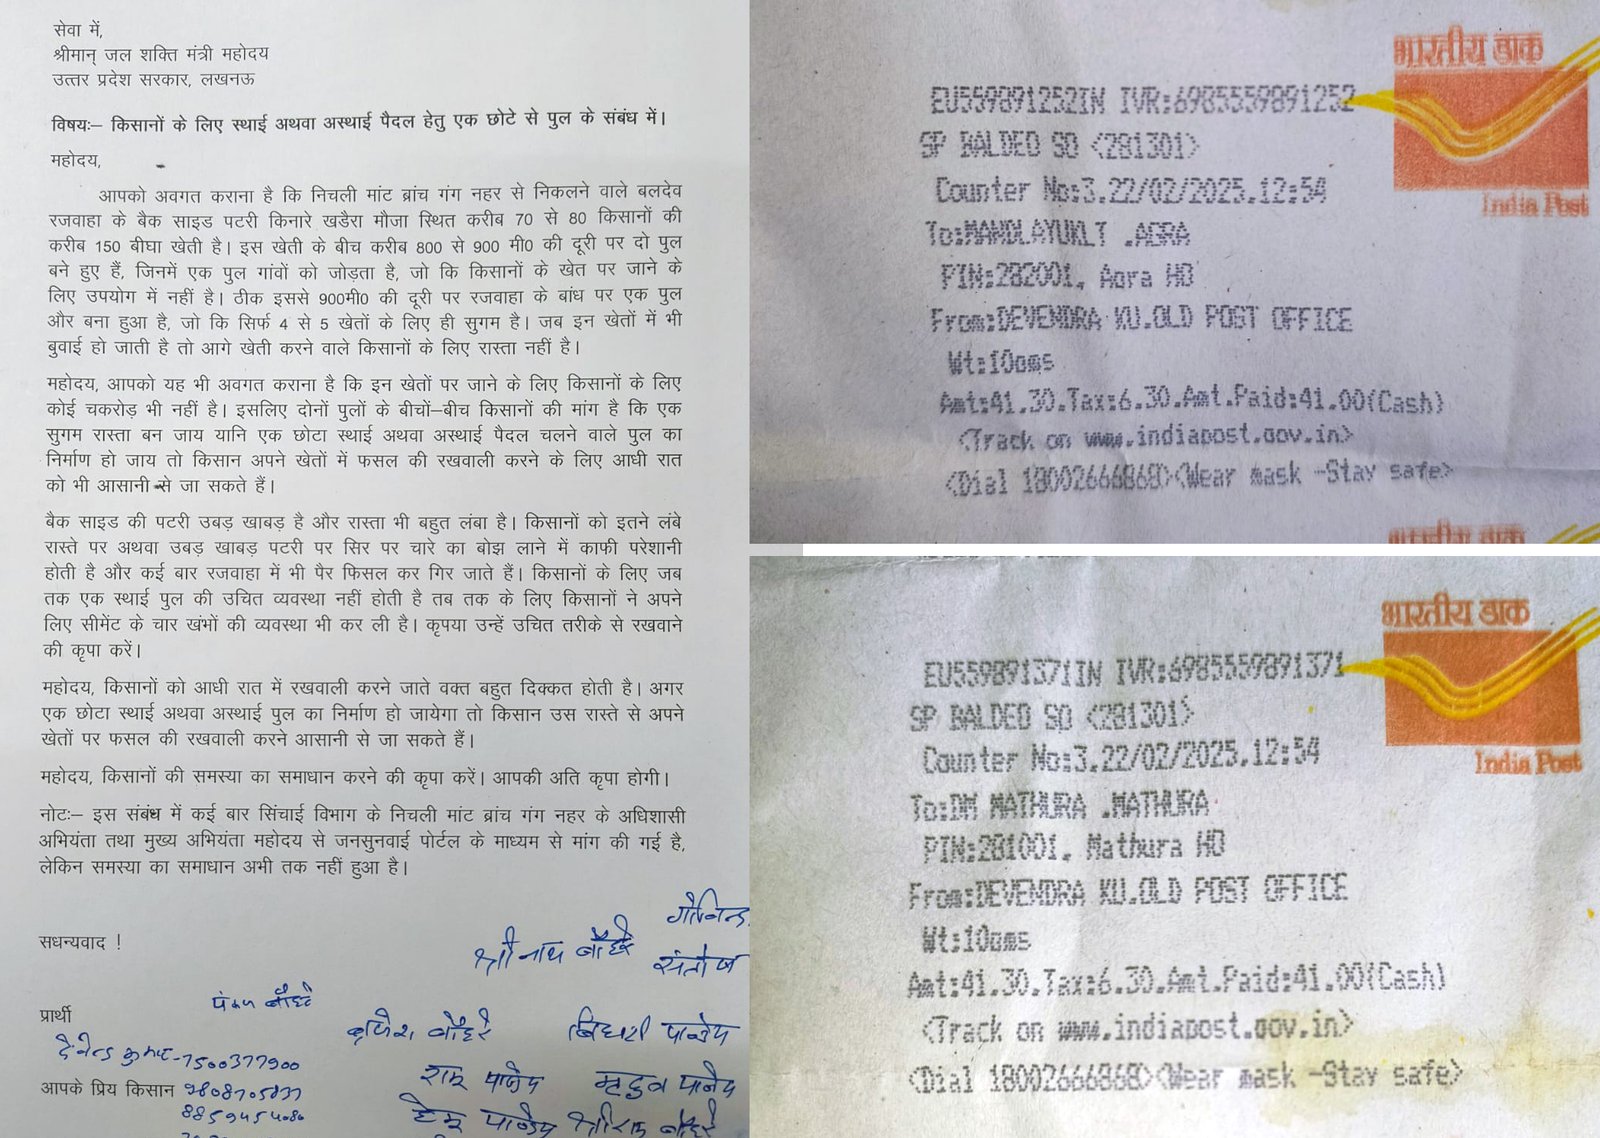 सेवा में,
श्रीमान् जल शक्ति मंत्री महोदय
उत्तर प्रदेश सरकार, लखनऊ
विषयः– किसानों के लिए स्थाई अथवा अस्थाई पैदल हेतु एक छोटे से पुल के संबंध में।
महोदय,
आपको अवगत कराना है कि निचली मांट ब्रांच गंग नहर से निकलने वाले बलदेव
रजवाहा के बैक साइड पटरी किनारे खडैरा मौजा स्थित करीब 70 से 80 किसानों की
करीब 150 बीघा खेती है। इस खेती के बीच करीब 800 से 900 मी0 की दूरी पर दो पुल
बने हुए हैं, जिनमें एक पुल गांवों को जोड़ता है, जो कि किसानों के खेत पर जाने के
लिए उपयोग में नहीं है। ठीक इससे 900मी0 की दूरी पर रजवाहा के बांध पर एक पुल
और बना हुआ है, जो कि सिर्फ 4 से 5 खेतों के लिए ही सुगम है। जब इन खेतों में भी
बुवाई हो जाती है तो आगे खेती करने वाले किसानों के लिए रास्ता नहीं है।
महोदय, आपको यह भी अवगत कराना है कि इन खेतों पर जाने के लिए किसानों के लिए
कोई चकरोड़ भी नहीं है। इसलिए दोनों पुलों के बीचों–बीच किसानों की मांग है कि एक
सुगम रास्ता बन जाय यानि एक छोटा स्थाई अथवा अस्थाई पैदल चलने वाले पुल का
निर्माण हो जाय तो किसान अपने खेतों में फसल की रखवाली करने के लिए आधी रात
को भी आसानी से जा सकते हैं।
बैक साइड की पटरी उबड़ खाबड़ है और रास्ता भी बहुत लंबा है। किसानों को इतने लंबे
रास्ते पर अथवा उबड़ खाबड़ पटरी पर सिर पर चारे का बोझ लाने में काफी परेशानी
होती है और कई बार रजवाहा में भी पैर फिसल कर गिर जाते हैं। किसानों के लिए जब
तक एक स्थाई पुल की उचित व्यवस्था नहीं होती है तब तक के लिए किसानों ने अपने
लिए सीमेंट के चार खंभों की व्यवस्था भी कर ली है। कृपया उन्हें उचित तरीके से रखवाने
की कृपा करें।
महोदय, किसानों को आधी रात में रखवाली करने जाते वक्त बहुत दिक्कत होती है। अगर
एक छोटा स्थाई अथवा अस्थाई पुल का निर्माण हो जायेगा तो किसान उस रास्ते से अपने
खेतों पर फसल की रखवाली करने आसानी से जा सकते हैं।
महोदय, किसानों की समस्या का समाधान करने की कृपा करें। आपकी अति कृपा होगी।
नोटः– इस संबंध में कई बार सिंचाई विभाग के निचली मांट ब्रांच गंग नहर के अधिशासी
अभियंता तथा मुख्य अभियंता महोदय से जनसुनवाई पोर्टल के माध्यम से मांग की गई है,
लेकिन समस्या का समाधान अभी तक नहीं हुआ है।
सधन्यवाद !
गोविन्द
श्रीनाथ बौहरे
संतोष
प्रार्थी
पंकज बौहरे
बौहरे
बिहारी पाण्डेय
देवेन्द्र कुमार-7500377900
आपके प्रिय किसान
राम पाण्डेय
पाण्डेय
हेम पाण्डेय
श्रीराम बौहरे
भारतीय डाक
India Post
EU559891252IN IVR:6985559891252
SP BALDEO SO <281301>
Counter No:3,22/02/2025,12:54
To:MANDLAYUKLT ,AGRA
PIN:282001, Agra HO
From:DEVENDRA KU,OLD POST OFFICE
Wt:10gms
Amt:41.30,Tax:6.30,Amt.Paid:41.00(Cash)
<Track on www.indiapost.gov.in>
<Dial 18002666868><Wear mask -Stay safe>
भारतीय डाक
भारतीय डाक
India Post
EU559891371IN IVR:6985559891371
SP BALDEO SO <281301>
Counter No:3,22/02/2025,12:54
To:DM MATHURA ,MATHURA
PIN:281001, Mathura HO
From:DEVENDRA KU,OLD POST OFFICE
Wt:10gms
Amt:41.30,Tax:6.30,Amt.Paid:41.00(Cash)
<Track on www.indiapost.gov.in>
<Dial 18002666868><Wear mask -Stay safe>